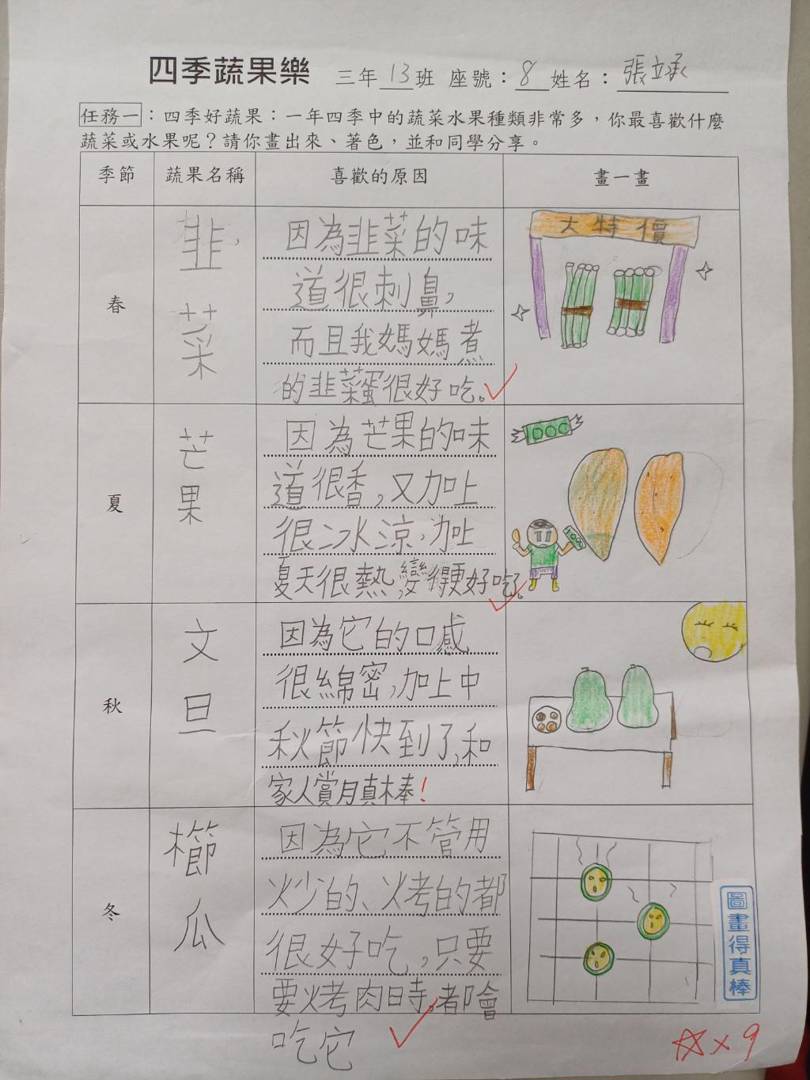 四季蔬果樂 三年13班 座號：8 姓名：張立承
任務一：四季好蔬果：一年四季中的蔬菜水果種類非常多，你最喜歡什麼
蔬菜或水果呢？請你畫出來、著色，並和同學分享。
季節 蔬果名稱 喜歡的原因 畫一畫
春
韭菜
因為韭菜的味
道很刺鼻，
而且我媽媽煮
的韭菜蛋很好吃。
大特價
夏
芒果
因為芒果的味
道很香，又加上
很冰涼，加上
夏天很熱，變得更好吃了。
秋
文旦
因為它的口感
很綿密，加上中
秋節快到了，和
家人賞月真棒！
冬
櫛瓜
因為它不管用
炒的、烤的都
很好吃，只要
要烤肉時，都會
吃它
圖畫得真棒
☆×9